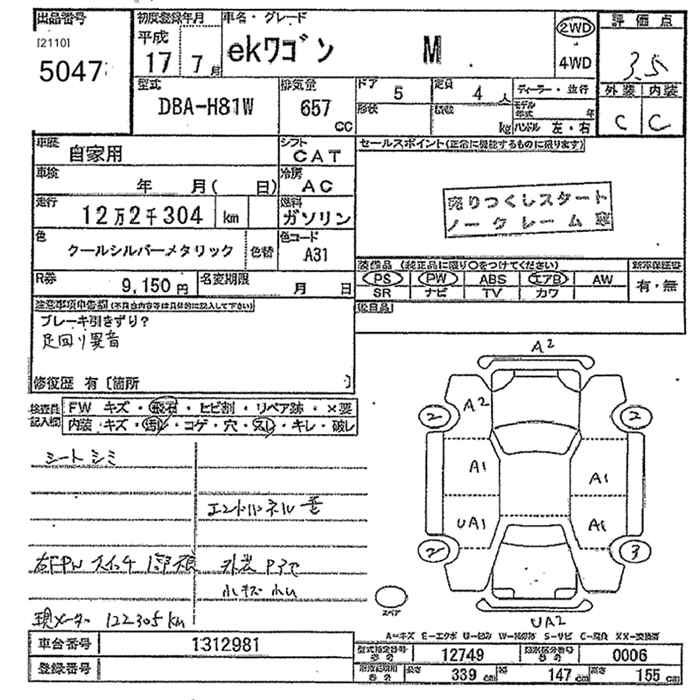 出品番号
[2110]
5047
初度登録年月
平成
17 7月
車名・グレード
ekワゴン M
2WD
4WD
評価点
3.5
外装 内装
C C
型式
DBA-H81W
排気量
657
CC
ドア
5
形状
定員
4人
積載
kg
ディーラー・並行
モデル
年式 年
ハンドル 左・右
車歴
自家用
シフト
CAT
車検
年 月( 日)
冷房
AC
走行
12万2千304 km
燃料
ガソリン
色
クールシルバーメタリック
色替
色コード
A31
R券
9,150円
名変期限
月 日
セールスポイント(正常に機能するものに限ります)
売りつくしスタート
ノークレーム
装備品 (純正品に限り○をつけてください)
新車保証書
PS PW ABS エアB AW
SR ナビ TV カワ
有・無
後日品
注意事項申告欄(不具合内容等は具体的に記入して下さい)
ブレーキ引きずり?
足回り異音
修復歴 有 [箇所 ]
検査員
記入欄
FW キズ・飛石・ヒビ割・リペア跡・×要
内装・キズ・汚れ・コゲ・穴・スレ・キレ・破レ
シートシミ
エントパネル
右FPW スイッチ
外装
小キズ 小ヘコ
現メーター 122305km
A2
A2
2 2
A1 A1
UA1 A1
2 3
スペア
UA2
A-キズ E-エクボ U-凹み W-補修跡 S-サビ C-腐食 XX-交換済
車台番号
1312981
登録番号
型式指定番号
12749
類別区分番号
0006
長さ
339 cm
幅
147 cm
高さ
155 cm